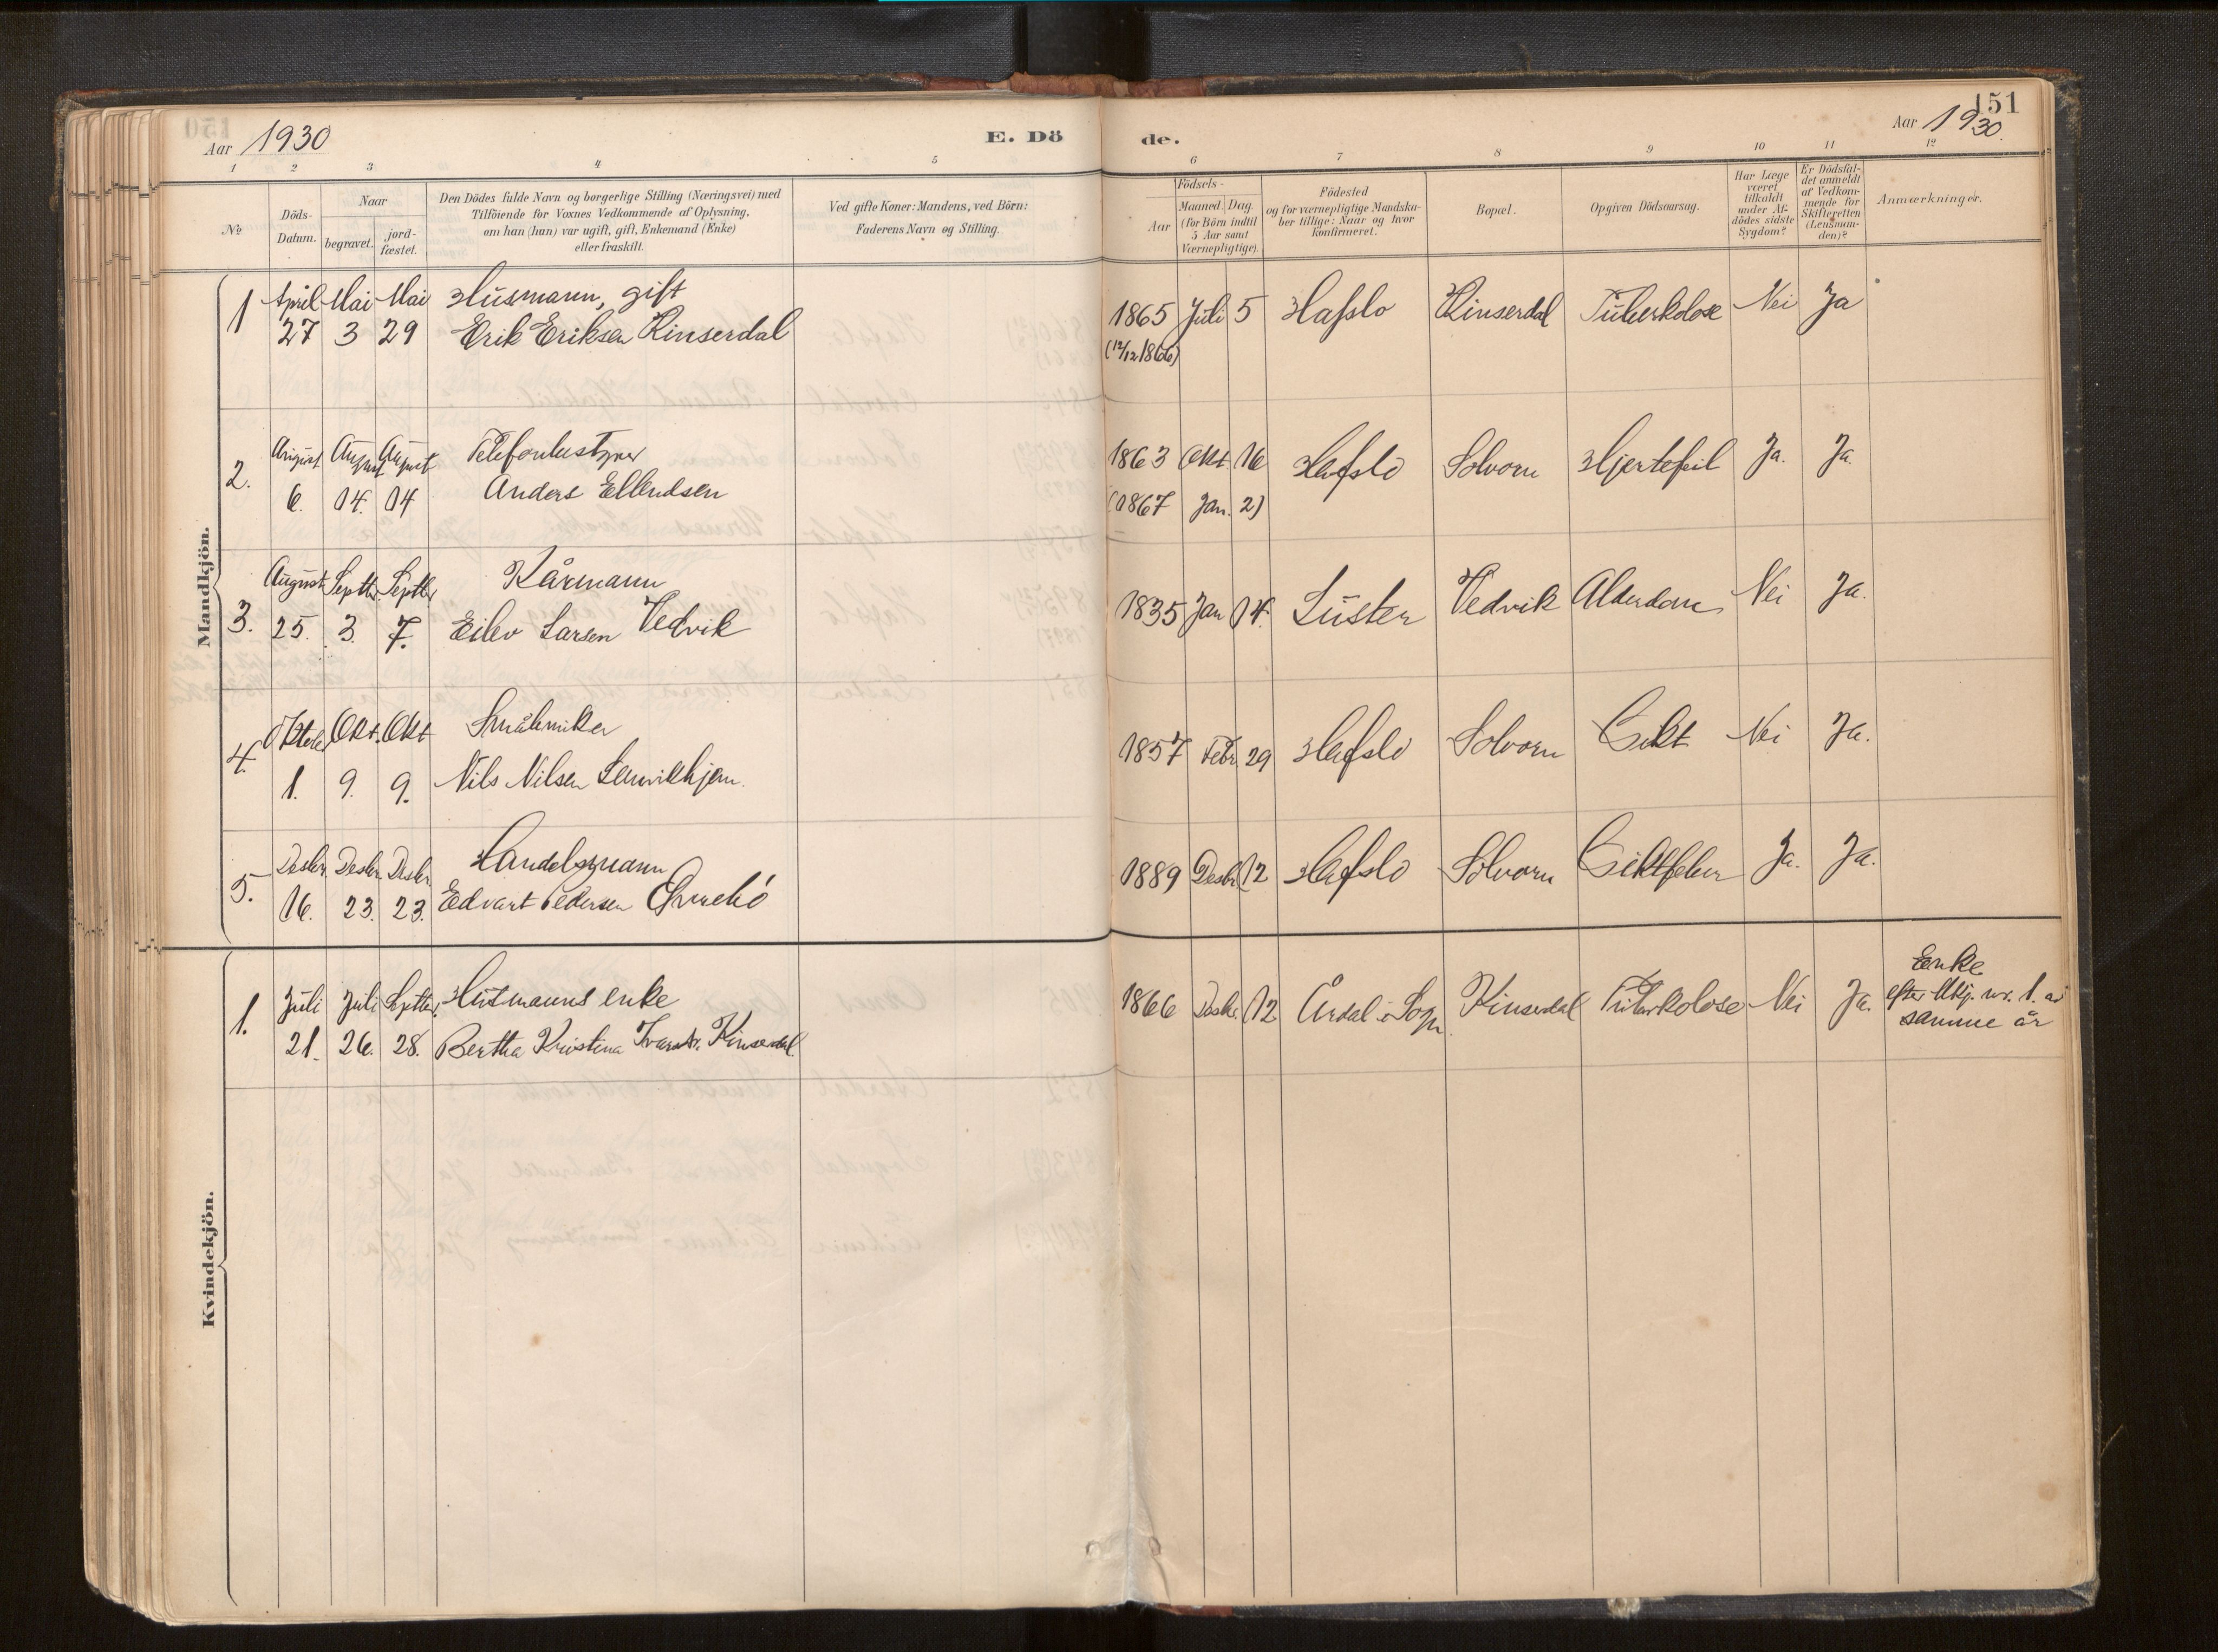 151
Aar 1930
E. Dö
de.
Aar 1930.
1 2 3 4 5
6 7 8 9 10 11 12
No
Döds-
Datum.
Naar
begravet.
jord-
fæstet.
Den Dödes fulde Navn og borgerlige Stilling (Næringsvei) med
Tilföiende for Voxnes Vedkommende af Oplysning,
om han (hun) var ugift, gift, Enkemand (Enke)
eller fraskilt.
Ved gifte Koner: Mandens, ved Börn:
Faderens Navn og Stilling.
Födsels-
Aar
Maaned. Dag.
(for Börn indtil
5 Aar samt
Værnepligtige).
Födested
og for værnepligtige Mandska-
ber tillige: Naar og hvor
konfirmeret.
Bopæl.
Opgiven Dödsaarsag.
Har Læge
været
tilkaldt
under Af-
dödes sidste
Sygdom?
Er Dödsfal-
det anmeldt
af Vedkom-
mende for
Skifteretten
(Lensman-
den)?
Anmærkninger.
Mandkjön.
1 April Mai Mai Husmann, gift
27 3 29 Erik Eriksen Kinserdal
1865 Juli 5 Hafslo Kinserdal Tuberkolose Nei Ja
(12/12 1866)
2. August August August Telefonbestyrer
6. 14. 14 Anders Ellendsen
1863 Okt. 16 Hafslo Solvorn Hjertefeil Ja. Ja.
(1867 Jan. 2)
3. August Septbr. Septbr Kårmann
25. 3. 7. Eilev Larsen Vedvik
1835 Jan 14. Luster Vedvik Alderdom Nei Ja.
4. Oktober Okt. Okt Småbruker
1. 9. 9. Nils Nilsen
1857 Febr. 29 Hafslo Solvorn Gikt Nei Ja.
5. Desbr. Desbr. Desbr. Handelsmann
16. 23. 23. Edvart Pedersen
1889 Desbr 12 Hafslo Solvorn Giktfeber Ja. Ja.
Kvindekjön.
1. Juli Juli Septbr. Husmanns enke
21. 26. 28. Bertha Kristina Ivarsdr. Kinserdal.
1866 Desbr. 12 Årdal i Sogn Kinserdal Tuberkolose Nei Ja.
Enke
efter Mkj. nr. 1. av
samme år